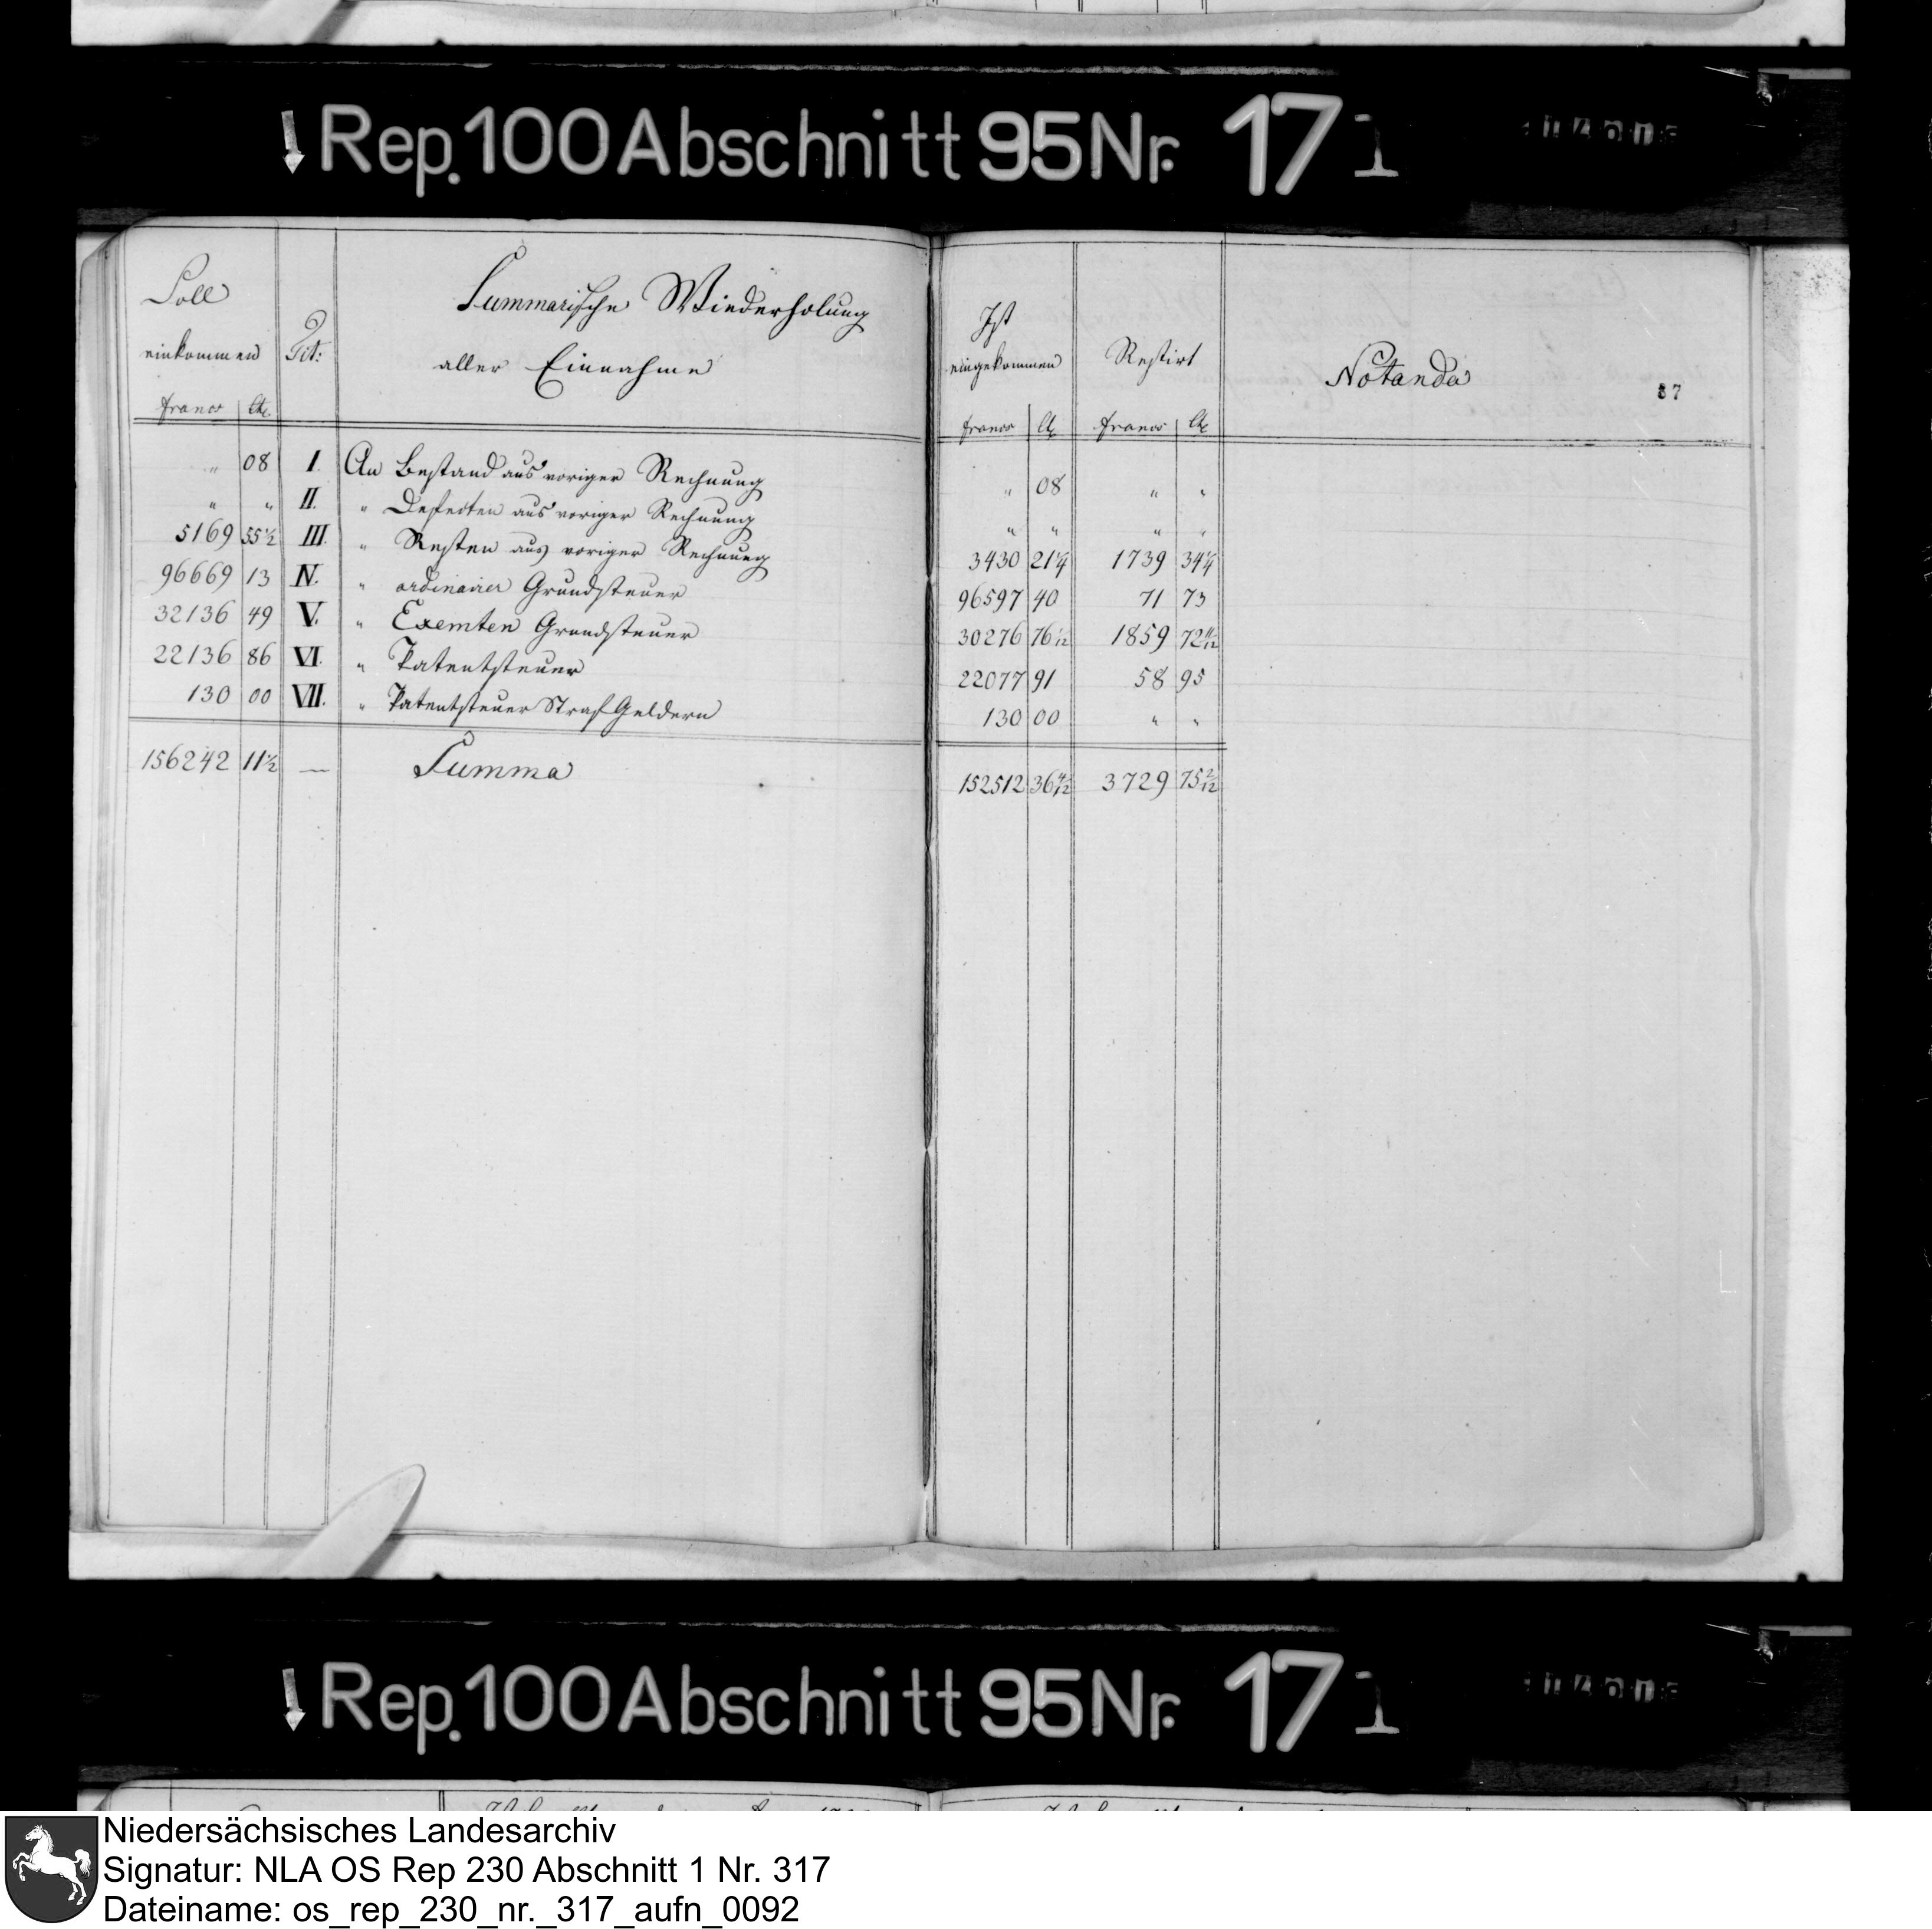 Rep. 100 Abschnitt 95 Nr. 17 1
Soll
einkommen
francs | Ct.
Tit:
Summarische Wiederholung
aller Einnahme
Ist
eingekommen
francs | Ct.
Restirt
francs | Ct.
Notanda
87
" 08 I. An Bestand aus voriger Rechnung " 08 " "
" " II. " Defecten aus voriger Rechnung " " " "
5169 55½ III. " Resten aus voriger Rechnung 3430 21¼ 1739 34¼
96669 13 IV. " ordinairer Grundsteuer 96597 40 71 73
32136 49 V. " Exemten Grundsteuer 30276 76 1/12 1859 72 11/12
22136 86 VI. " Patentsteuer 22077 91 58 95
130 00 VII. " Patentsteuer Straf Geldern 130 00 " "
156242 11½ — Summa 152512 36 4/12 3729 75 2/12
Rep. 100 Abschnitt 95 Nr. 17 1
Niedersächsisches Landesarchiv
Signatur: NLA OS Rep 230 Abschnitt 1 Nr. 317
Dateiname: os_rep_230_nr._317_aufn_0092